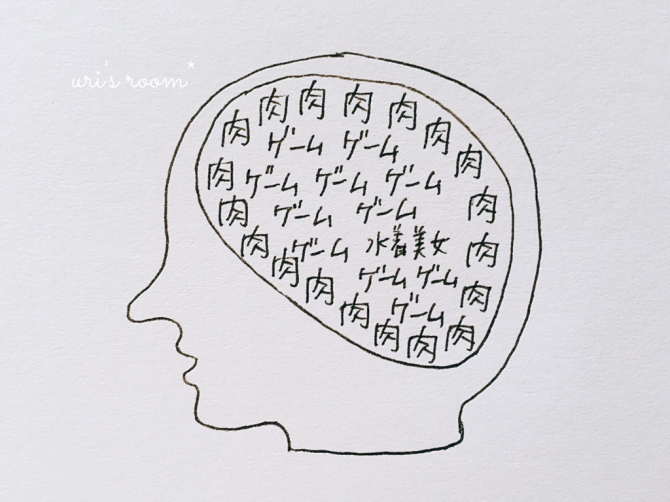 uri's room*
肉 肉 肉 肉
肉 ゲーム ゲーム 肉
肉 ゲーム ゲーム ゲーム 肉
肉 ゲーム ゲーム 肉
肉 ゲーム 水着美女 肉
肉 ゲーム ゲーム
肉 ゲーム 肉
肉 肉 肉 肉